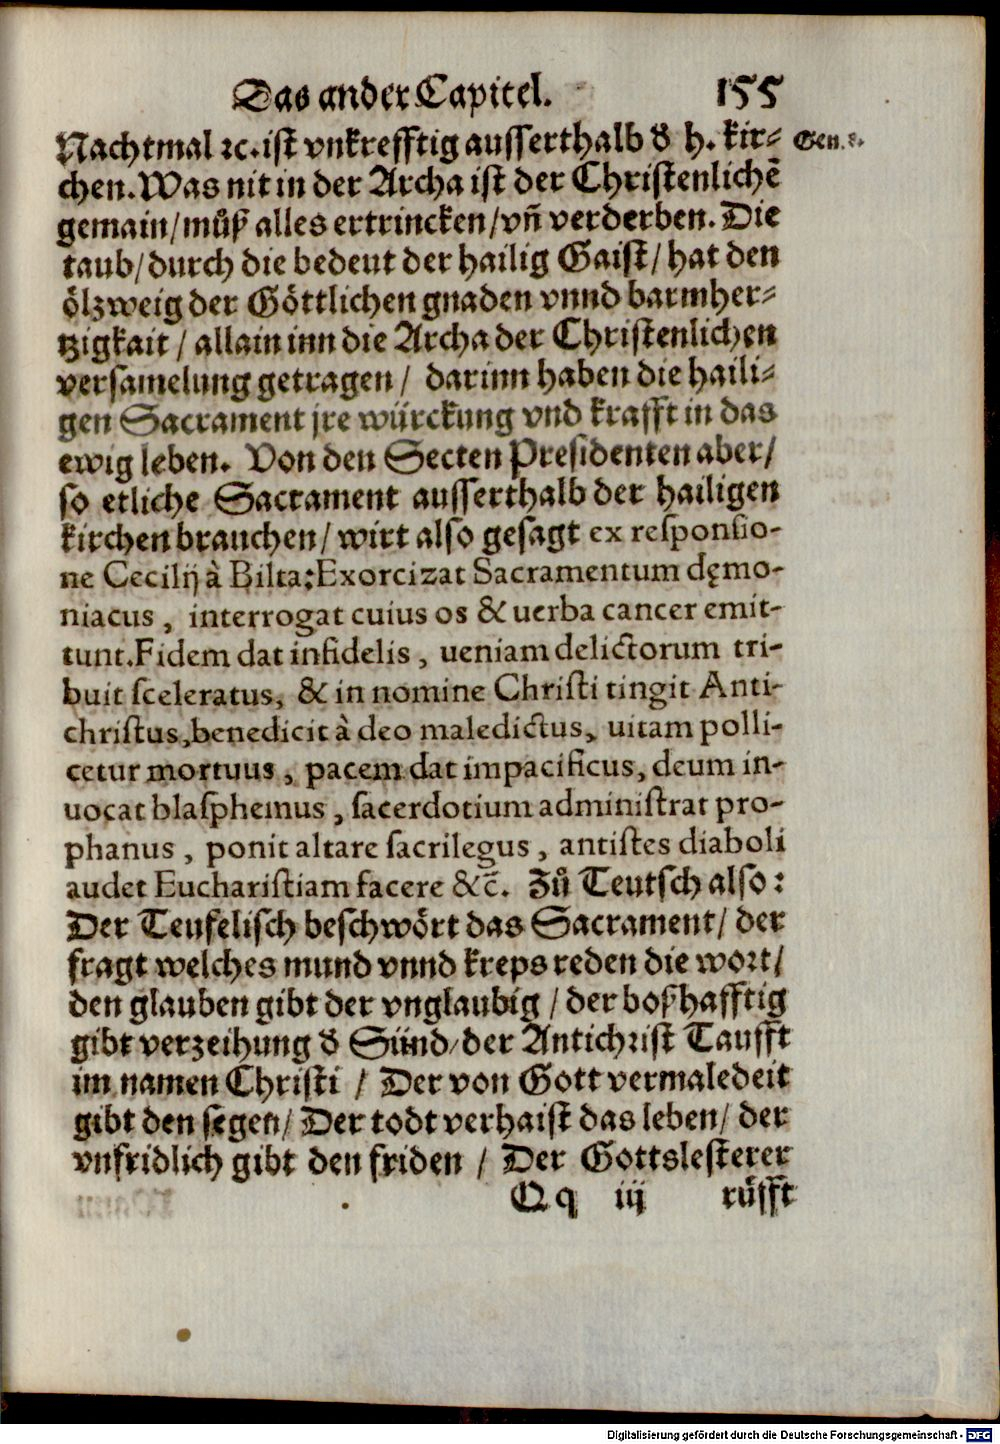 Das ander Capitel. 155
Nachtmal ꝛc. ist vnkrefftig ausserthalb d' h. kir⸗ Gen. 8.
chen. Was nit in der Archa ist der Christenlichē
gemain/ můß alles ertrincken/ vñ verderben. Die
taub/ durch die bedeut der hailig Gaist/ hat den
ölzweig der Göttlichen gnaden vnnd barmher⸗
tzigkait/ allain inn die Archa der Christenlichen
versamelung getragen/ darinn haben die haili⸗
gen Sacrament jre würckung vnd krafft in das
ewig leben. Von den Secten Presidenten aber/
so etliche Sacrament ausserthalb der hailigen
kirchen brauchen/ wirt also gesagt ex responsio-
ne Cecilij à Bilta: Exorcizat Sacramentum dęmo-
niacus, interrogat cuius os & uerba cancer emit-
tunt. Fidem dat infidelis, ueniam delictorum tri-
buit sceleratus, & in nomine Christi tingit Anti-
christus, benedicit à deo maledictus, uitam polli-
cetur mortuus, pacem dat impacificus, deum in-
uocat blasphemus, sacerdotium administrat pro-
phanus, ponit altare sacrilegus, antistes diaboli
audet Eucharistiam facere &c̃. Zů Teutsch also:
Der Teufelisch beschwört das Sacrament/ der
fragt welches mund vnnd kreps reden die wort/
den glauben gibt der vnglaubig/ der boßhafftig
gibt verzeihung d' Sünd/ der Antichrist Taufft
im namen Christi/ Der von Gott vermaledeit
gibt den segen/ Der todt verhaist das leben/ der
vnfridlich gibt den friden/ Der Gottslesterer
Q q iij růfft
Digitalisierung gefördert durch die Deutsche Forschungsgemeinschaft - DFG